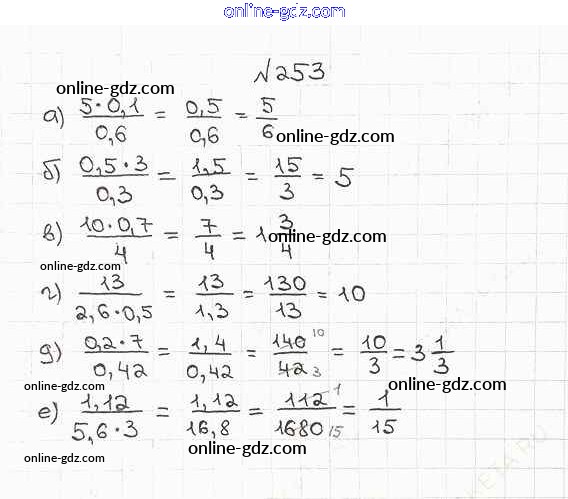 online-gdz.com
№253
online-gdz.com
а) 5·0,1/0,6 = 0,5/0,6 = 5/6
online-gdz.com
online-gdz.com
б) 0,5·3/0,3 = 1,5/0,3 = 15/3 = 5
online-gdz.com
в) 10·0,7/4 = 7/4 = 1 3/4
online-gdz.com
online-gdz.com
г) 13/2,6·0,5 = 13/1,3 = 130/13 = 10
online-gdz.com
д) 0,2·7/0,42 = 1,4/0,42 = 140 10/42 3 = 10/3 = 3 1/3
online-gdz.com
online-gdz.com
е) 1,12/5,6·3 = 1,12/16,8 = 112 1/1680 15 = 1/15
online-gdz.com
online-gdz.com